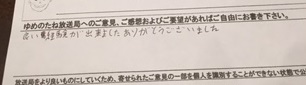 ゆめのたね放送局へのご意見、ご感想およびご要望があればご自由にお書き下さい。
良い経験が出来ましたありがとうございました
放送局をより良いものにしていくため、寄せられたご意見の一部を個人を識別することができない状態で公